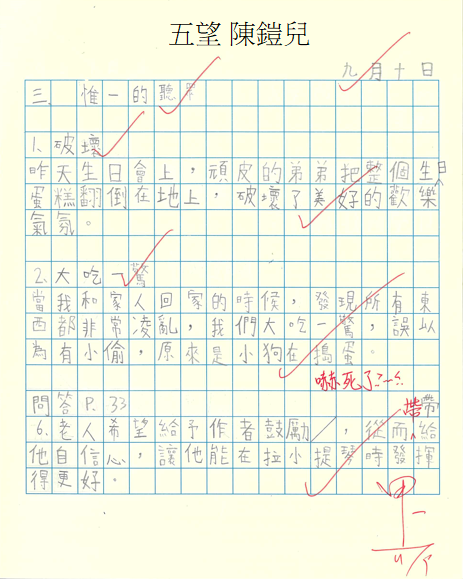 五望 陳鎧兒
九月十日
三、惟一的聽眾
1.破壞
昨天生日會上，頑皮的弟弟把整個生日
蛋糕翻倒在地上，破壞了美好的歡樂
氣氛。
2.大吃一驚
當我和家人回家的時候，發現所有東
西都非常凌亂，我們大吃一驚，誤以
為有小偷，原來是小狗在搗蛋。
嚇死了
問答 P.33
帶
6.老人希望給予作者鼓勵，從而給
他自信心，讓他能在拉小提琴時發揮
得更好。
甲